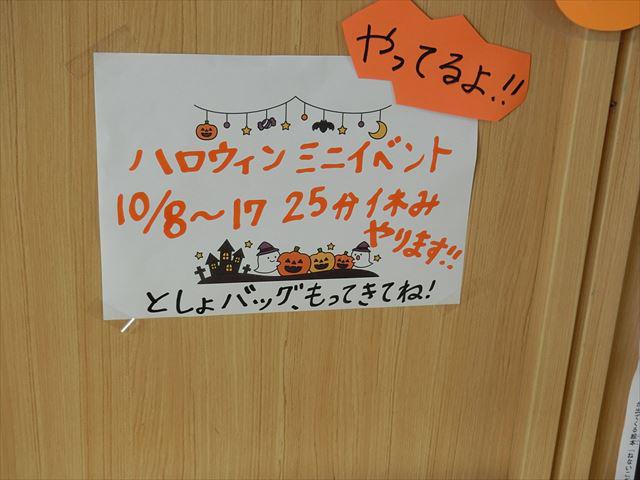 やってるよ!!
ハロウィン ミニイベント
10/8〜17 25分休み
やります!!
としょバッグ、もってきてね!